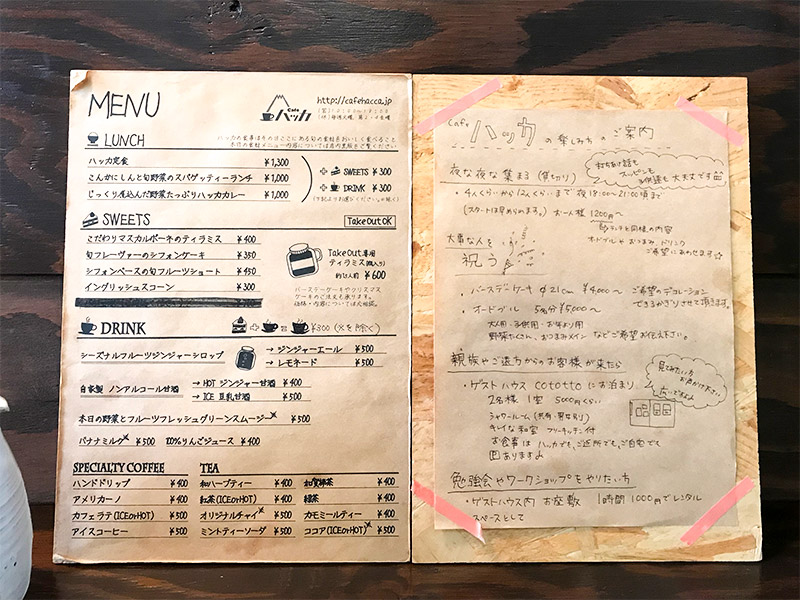 MENU
Cafe
ハッカ
http://cafehacca.jp
LUNCH
ハッカの食事はそのほとんどここにある旬の食材をおいしく食べること
本日の食材メニュー内容については店内黒板をご覧ください
ハッカ定食 ¥1,300
こんかにしんと旬野菜のスパゲッティーランチ ¥1,000
じっくり煮込んだ野菜たっぷりハッカカレー ¥1,000
+ SWEETS ¥300
+ DRINK ¥300
SWEETS
Take Out OK
こだわりマスカルポーネのティラミス ¥400
旬フレーヴァーのシフォンケーキ ¥350
シフォンベースの旬フルーツショート ¥450
イングリッシュスコーン ¥300
Take Out専用
ティラミス(瓶入り)
約1.5人前 ¥600
バースデーケーキやクリスマス
ケーキのご注文も承ります。
価格・内容については応相談。
DRINK
+ = ¥300 (※を除く)
シーズナルフルーツジンジャーシロップ
→ ジンジャーエール ¥500
→ レモネード ¥500
自家製 ノンアルコール甘酒
→ HOT ジンジャー甘酒 ¥400
→ ICE 豆乳甘酒 ¥500
本日の野菜とフルーツフレッシュグリーンスムージー※ ¥500
バナナミルク※ ¥500 100%りんごジュース ¥400
SPECIALTY COFFEE
ハンドドリップ ¥400
アメリカーノ ¥400
カフェラテ(ICE or HOT) ¥500
アイスコーヒー ¥500
TEA
和ハーブティー ¥400
紅茶(ICE or HOT) ¥400
オリジナルチャイ※ ¥500
ミントティーソーダ ¥500
加賀棒茶 ¥400
緑茶 ¥400
カモミールティー ¥400
ココア(ICE or HOT)※ ¥500
Cafe ハッカ の楽しみ方のご案内
夜な夜な集まる(貸切り)
打ち合わせ、話も
スッピンも
子供達も大丈夫です
・4人くらいから12人くらいまで 夜18:00〜21:00頃まで
(スタートは早められます。) お一人様 1200円〜
ランチと同様の内容
オードブルやおつまみ、ドリンク
ご希望にあわせます☆
大事な人を
祝う
・バースデーケーキ Φ21cm ¥4,000〜 ご希望のデコレーション
できるかぎりさせて頂きます。
・オードブル 5名分 ¥5,000〜
大人用・子供用・お年より用
野菜たくさん、おつまみメイン などご希望お伝え下さい。
親族やご遠方からのお客様が来たら
見てみたい方
お声かけ下さい
広いですよ
・ゲストハウス cototto にお泊まり
2名様 1室 5000円くらい
シャワールーム (共有・男女別)
キレイな和室 フリーキッチン付
お食事は ハッカでも、ご近所でも、ご自宅でも
囲めますよ
勉強会やワークショップをやりたい方
・ゲストハウス内 お座敷 1時間 1000円でレンタル
スペースとして